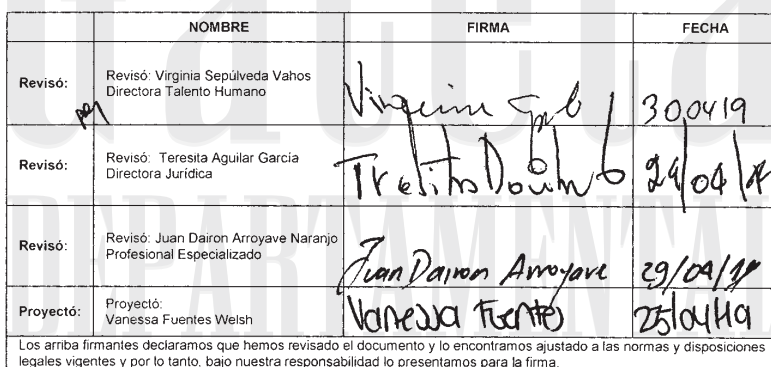 NOMBRE FIRMA FECHA
Revisó: Revisó: Virginia Sepúlveda Vahos
Directora Talento Humano
30 04 19
Revisó: Revisó: Teresita Aguilar García
Directora Jurídica
29/04/19
Revisó: Revisó: Juan Dairon Arroyave Naranjo
Profesional Especializado
Juan Dairon Arroyave 29/04/19
Proyectó: Proyectó:
Vanessa Fuentes Welsh
Vanessa Fuentes 25/04/19
Los arriba firmantes declaramos que hemos revisado el documento y lo encontramos ajustado a las normas y disposiciones
legales vigentes y por lo tanto, bajo nuestra responsabilidad lo presentamos para la firma.
DEPARTAMENTAL